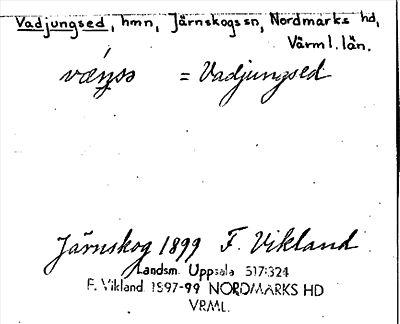 Vadjungsed, hmn, Järnskogssn, Nordmarks hd,
Värml. län.
= Vadjungsed
Järnskog 1899 F. Vikland
Landsm. Uppsala 517:324
F. Vikland 1897-99 NORDMARKS HD
VRML.